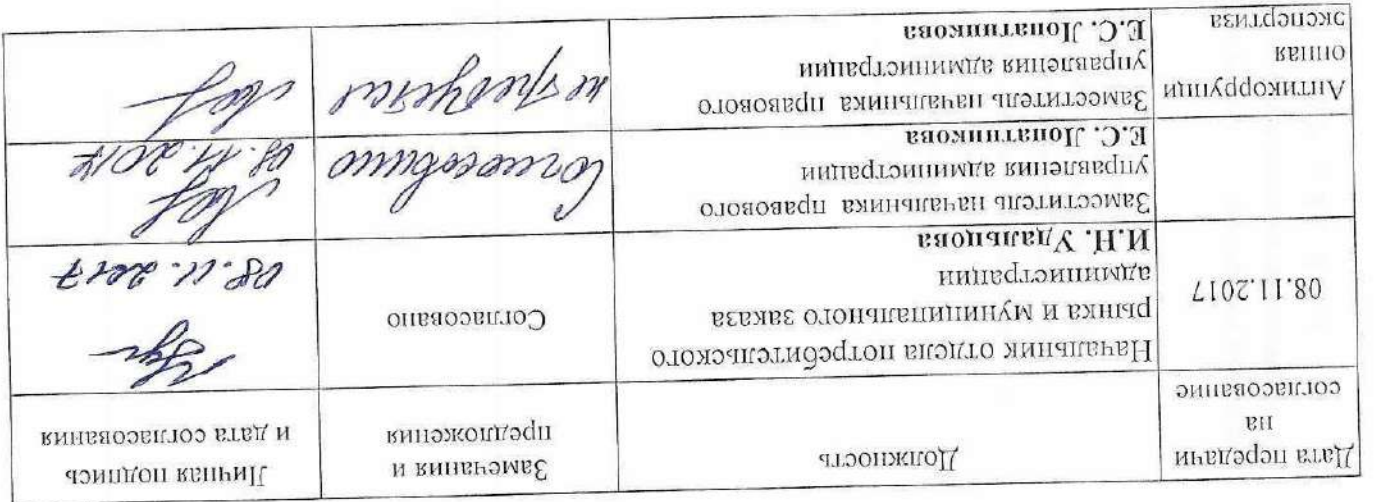 Дата передачи
на
согласование
Должность
Замечания и
предложения
Личная подпись
и дата согласования
08.11.2017
Начальник отдела потребительского
рынка и муниципального заказа
администрации
И.Н. Удальцова
Согласовано
08.11.2017
Заместитель начальника правового
управления администрации
Е.С. Лопатникова
Согласовано
08.11.2017
Антикоррупци
онная
экспертиза
Заместитель начальника правового
управления администрации
Е.С. Лопатникова
не требуется